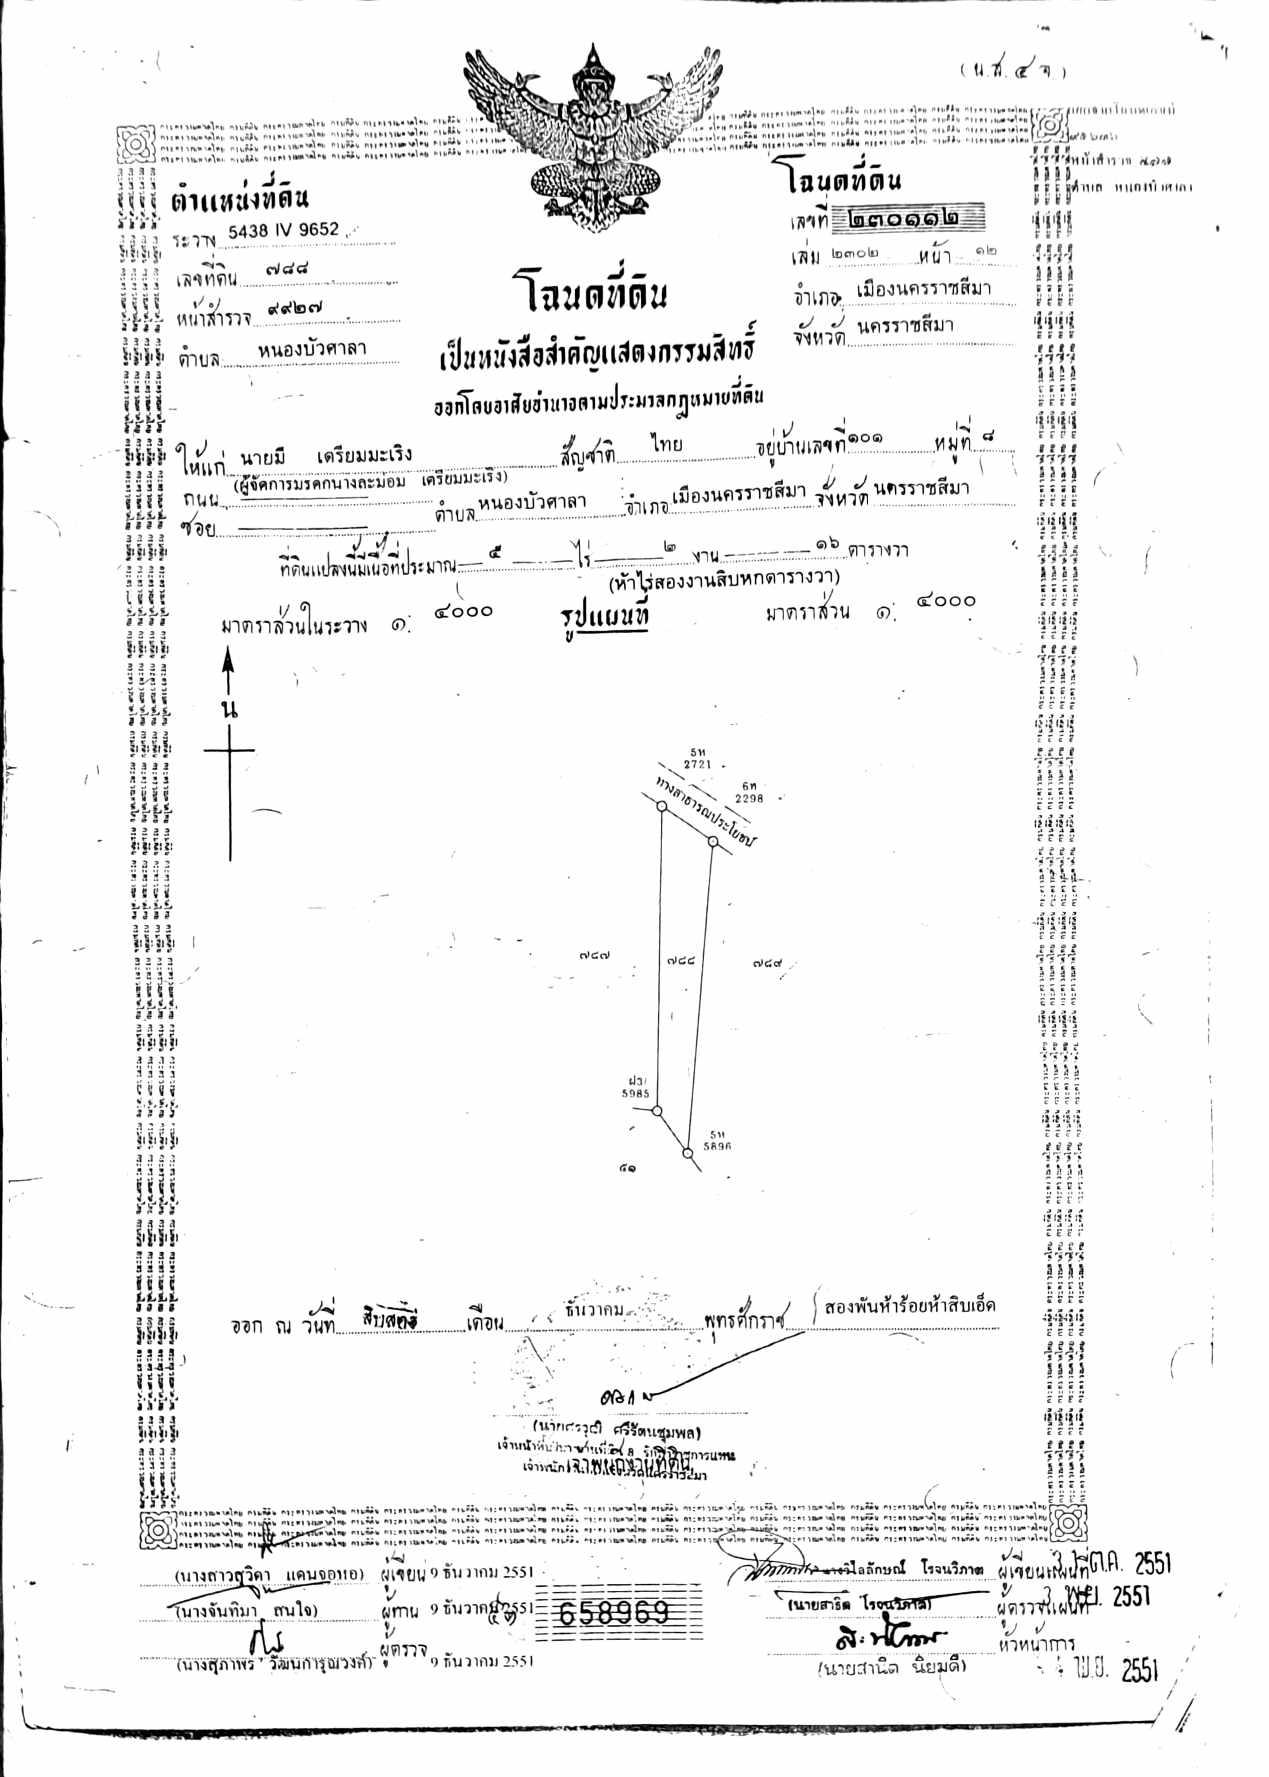 (น.ส. ๔ จ)
ตำแหน่งที่ดิน
ระวาง 5438 IV 9652
เลขที่ดิน ๗๘๘
หน้าสำรวจ ๙๙๒๗
ตำบล หนองบัวศาลา
โฉนดที่ดิน
เลขที่ ๒๓๐๑๑๒
เล่ม ๒๓๐๒ หน้า ๑๒
อำเภอ เมืองนครราชสีมา
จังหวัด นครราชสีมา
โฉนดที่ดิน
เป็นหนังสือสำคัญแสดงกรรมสิทธิ์
ออกโดยอาศัยอำนาจตามประมวลกฎหมายที่ดิน
ให้แก่ นายมี เตรียมมะเริง สัญชาติ ไทย อยู่บ้านเลขที่ ๑๐๑ หมู่ที่ ๘
(ผู้จัดการมรดกนางละม่อม เตรียมมะเริง)
ถนน
ซอย ตำบล หนองบัวศาลา อำเภอ เมืองนครราชสีมา จังหวัด นครราชสีมา
ที่ดินแปลงนี้มีเนื้อที่ประมาณ ๕ ไร่ ๒ งาน ๑๖ ตารางวา
(ห้าไร่สองงานสิบหกตารางวา)
มาตราส่วนในระวาง ๑: ๔๐๐๐ รูปแผนที่ มาตราส่วน ๑: ๔๐๐๐
น
5ท
2721
6ท
2298
ทางสาธารณประโยชน์
๗๘๗ ๗๘๘ ๗๘๙
ฝ3
5985
5ท
5896
๔๑
ออก ณ วันที่ สิบสอง เดือน ธันวาคม พุทธศักราช สองพันห้าร้อยห้าสิบเอ็ด
ศรีรัตนชุมพล)
เจ้าพนักงานที่ดิน
(นางสาวสุวิดา ผู้เขียน ๑ ธันวาคม 2551
(นางจันทิมา สนใจ) ผู้ทาน ๑ ธันวาคม 2551
(นางสุภาพร วัฒนการุณวงศ์) ผู้ตรวจ ๑ ธันวาคม 2551
658969
โรจนวิภาต ผู้เขียนแผนที่ ต.ค. 2551
(นายสาธิต โรจนวิภาต) ผู้ตรวจแผนที่ 2551
หัวหน้าการ
(นายสานิต นิยมดี) 2551